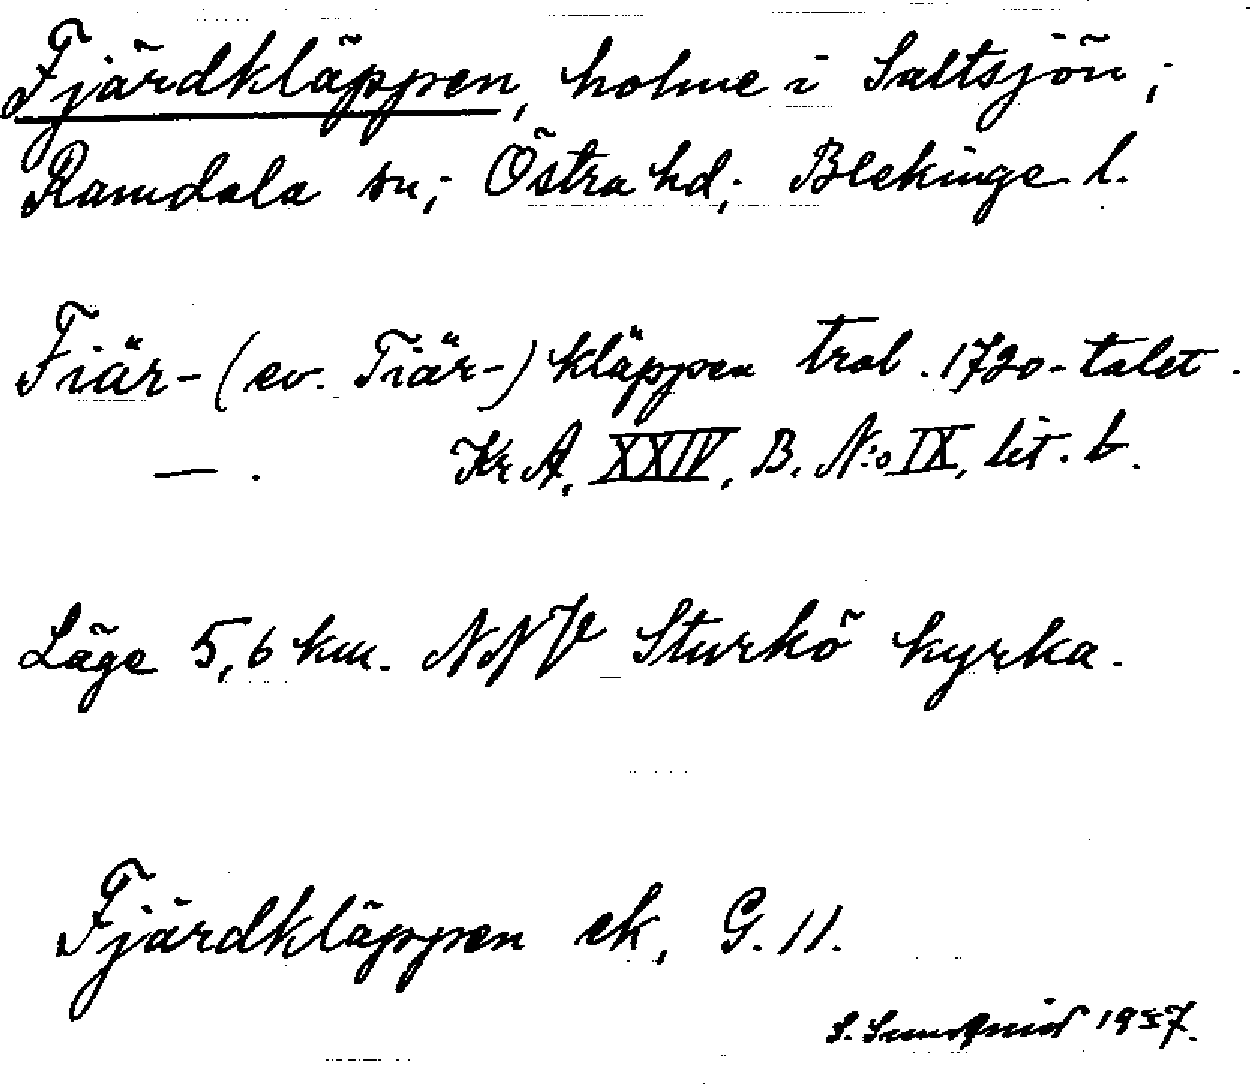 Fjärdkläppen, holme i Saltsjön;
Ramdala sn; Östra hd; Blekinge l.
Fiär- (ev. Tiär-) kläppen trol. 1720-talet.
— . KrA, XXIV, B. N:o IX, lit. b.
Läge 5,6 km. NNV Sturkö kyrka.
Fjärdkläppen ek, G. 11.
S. 1957.